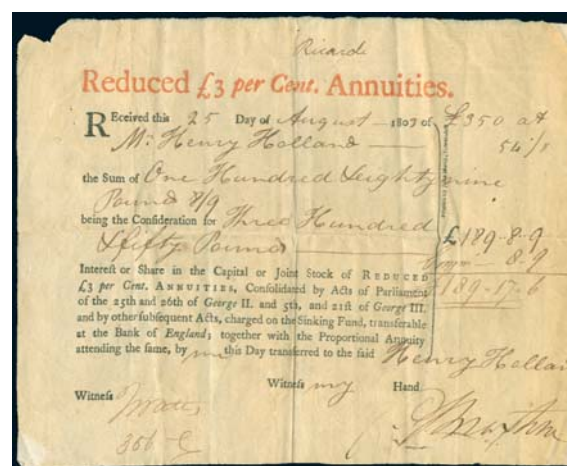 Ricardo
Reduced £3 per Cent. Annuities.
REceived this 25 Day of August 1803 of £350 at
Mr. Henry Holland 54 1/8
the Sum of One Hundred & eighty nine
Pound 8/9
being the Consideration for Three Hundred
& fifty Pound £189-8-9
Interest or Share in the Capital or Joint Stock of REDUCED 8.9
£3 per Cent. ANNUITIES, Consolidated by Acts of Parliament £189-17-6
of the 25th and 26th of George II. and 5th, and 21st of George III.
and by other subsequent Acts, charged on the Sinking Fund, transferable
at the Bank of England; together with the Proportional Annuity
attending the same, by me this Day transferred to the said Henry Holland
Witness my Hand
Witness